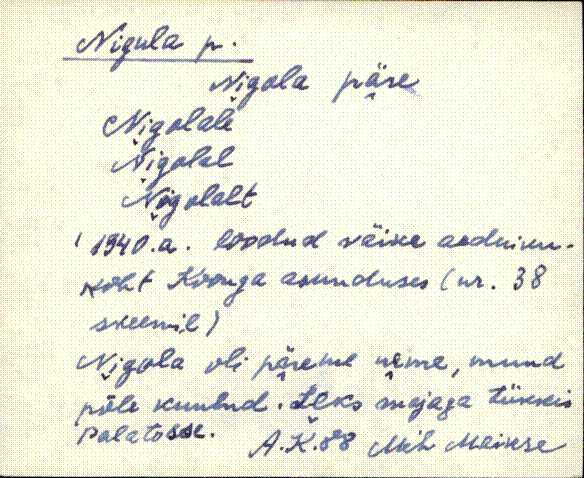 Nigula p.
Nigola päre
Nigolale
Nigolal
Nigolalt
1940.a. loodud väike aedniku-
koht Koonga asunduses (nr. 38
skeemil)
Nigola oli päreme neme, muud
põle kuulud. Läks majaga tükkis
Palatosse.
A.K.88 Mih Meikse